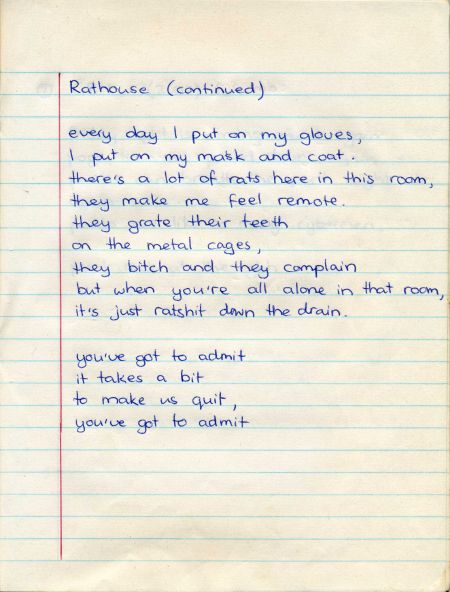 Rathouse (continued)
every day I put on my gloves,
I put on my mask and coat.
there's a lot of rats here in this room,
they make me feel remote.
they grate their teeth
on the metal cages,
they bitch and they complain
but when you're all alone in that room,
it's just ratshit down the drain.
you've got to admit
it takes a bit
to make us quit,
you've got to admit